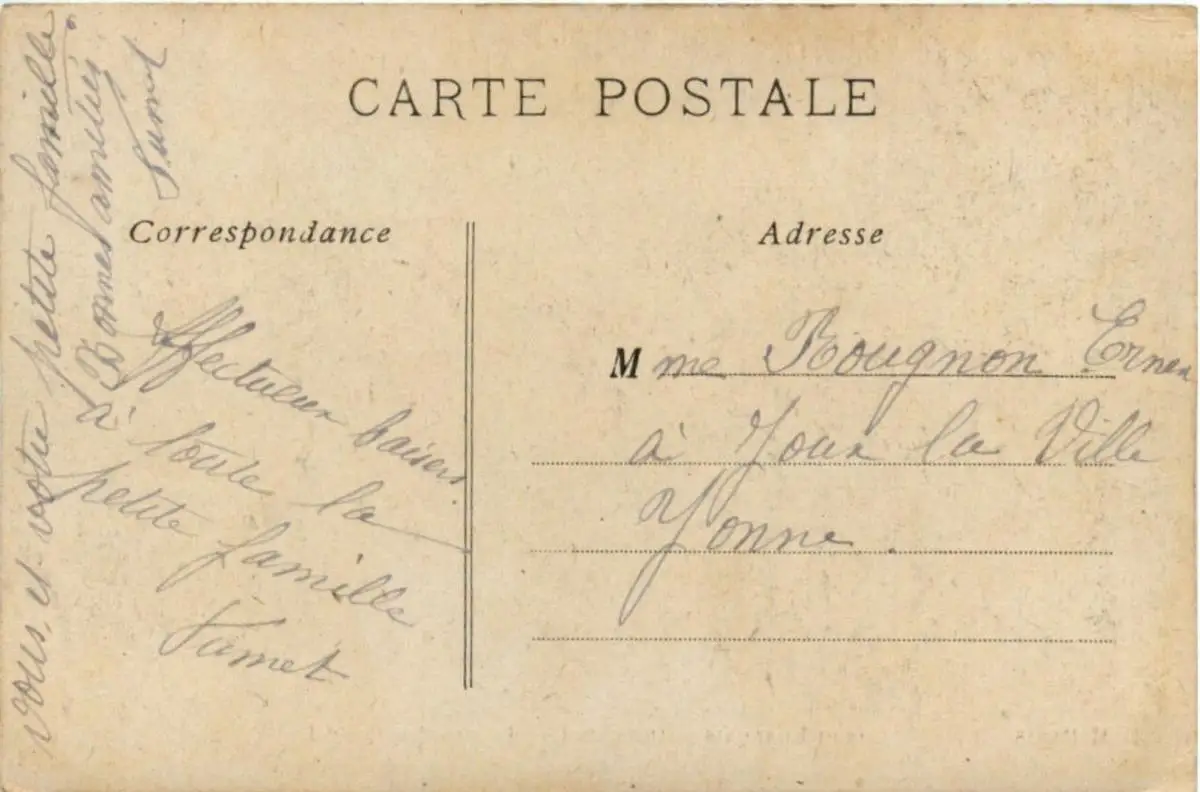 CARTE POSTALE
Correspondance
Adresse
Affectueux baisers
à toute la
petite famille
Fumet
Mme Rougnon Ernes
à Joux la Ville
Yonne.
vous et votre petite famille.
Bonnes amitiés